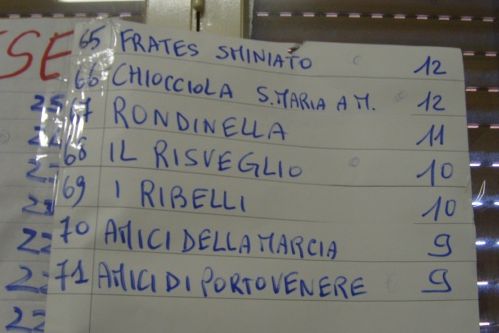 65 FRATES SMINIATO 12
66 CHIOCCIOLA S.MARIA A M. 12
67 RONDINELLA 11
68 IL RISVEGLIO 10
69 I RIBELLI 10
70 AMICI DELLA MARCIA 9
71 AMICI DI PORTOVENERE 9